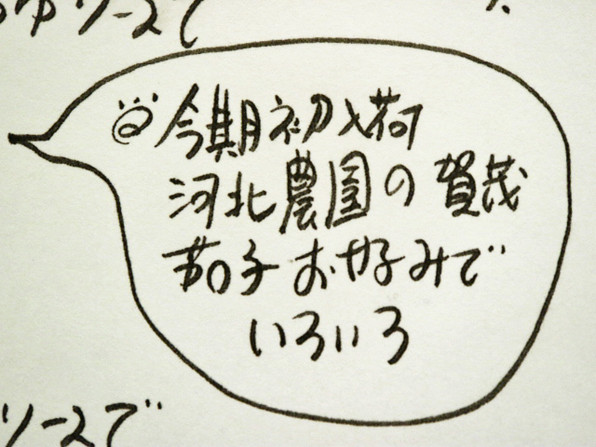 ソースで
今期初入荷
河北農園の賀茂
茄子お好みで
いろいろ
ソースで